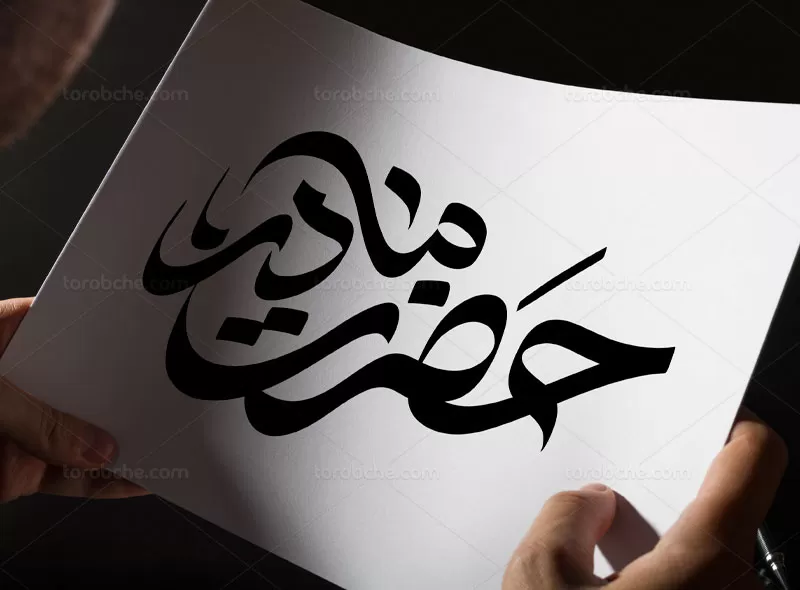 torobche.com torobche.com torobche.com
حضرت
مادر
torobche.com torobche.com torobche.com
torobche.com torobche.com torobche.com